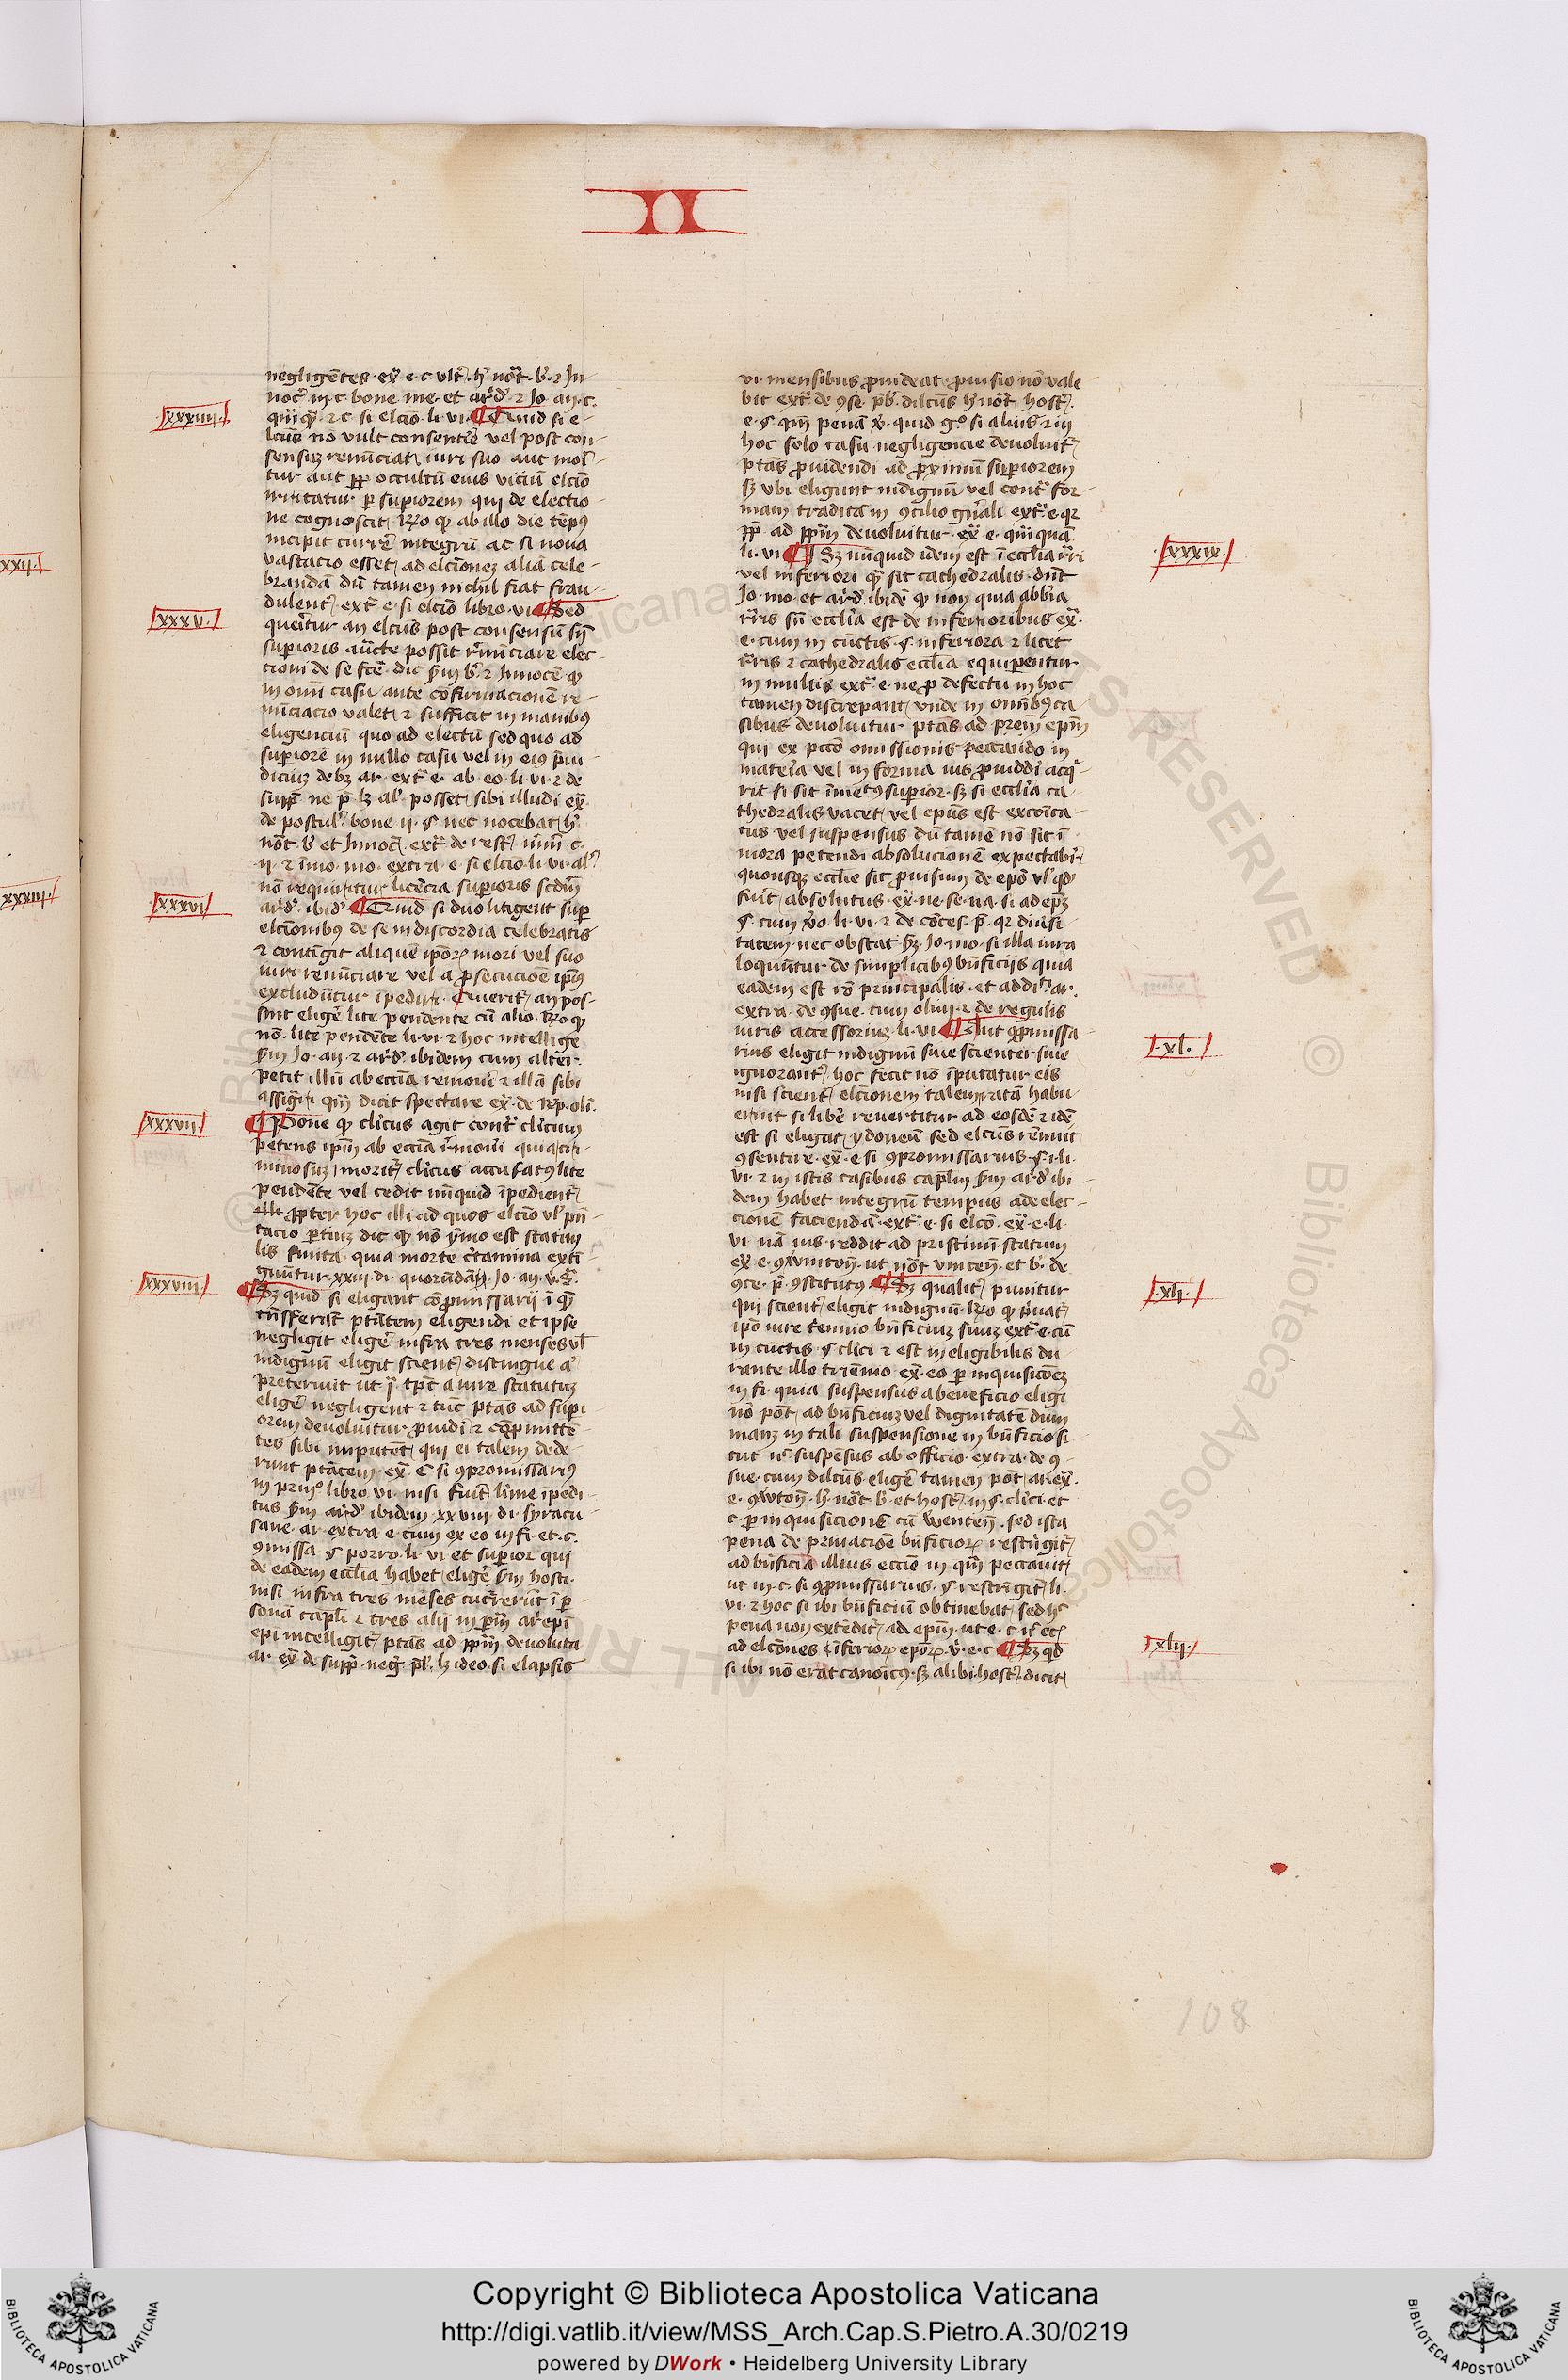 II
negligētes· ex̄· e· c· vlt̄· h̄ not̄· b̄· ⁊ Jn
noc̄ in c· bone me· et ar̄d̄ ⁊ Jo· an· c·
xxxiiii·
⁊ c· si elcīo· li· vi· ¶ Quid si e-
lcūs nō vult consentir̄e vel post con-
sensuz renūciat iuri suo aut mori
tur aut ꝓp̄ occultū eius viciū elcīo
irritatur per suꝑiorem qui de electio-
ne cognoscit Rō ꝙ ab illo die tēpꝰ
incipit currē integrū ac si noua
vastacio esset ad elcīonez alia cele-
brandā dū tamen nichil fiat frau-
dulent̄ ext̄ e· si elcīo libro· vi· ¶ Sed
xxxv·
querītur an elcūs post consensū sn̄
suꝑioris aūcte possit r̄nūciare elec-
cioni de se fc̄e· dic s̄m b̄· ⁊ Innocē ꝙ
in om̄i casu ante cōfirmacionē re-
nūciacio valet ⁊ sufficit in manibꝰ
eligenciū quo ad electū sed quo ad
suꝑiorē in nullo casu vel in eiꝰ p̄iu-
diciuz debꝫ ar· ext̄ e· ab eo· li· vi· ⁊ de
supp̄ ne p̄· lꝫ al̄ posset sibi illudi ex̄·
de postul̄· bone ii· § nec nocebat h̄·
not̄· b̄ et Innoc̄· ext̄ de rest̄·
ii· ⁊ Jmo· mo· extra· e· si elcīo· li· vi· al̄
nō requiritur licēcia suꝑioris scdm̄
xxxvi
ar̄d̄· ibid̄· ¶ Quid si duo litigent suꝑ
elcīonibꝰ de se in discordia celebratis
⁊ contīgit aliquē ip̄oꝝ mori vel suo
iuri renūciare vel a ꝓsecucioē ip̄iꝰ
excludūtur īpedīti· Querit̄ an pos-
sint eligē lite pendente cū alio· Rō ꝙ
nō· litē pendēte li· vi· ⁊ hoc intellige
s̄m Jo· an· ⁊ ar̄d̄· ibidem cum alter
petit illū ab ecc̄ia remouī ⁊ illā sibi
assigī qm̄ dicit spectare ex̄· de
xxxvii·
¶ Pone ꝙ cl̄icus agit cont̄ cl̄icum
petens ip̄m ab ecc̄ia r̄mouī quia cri-
minosuz morit̄ cl̄icus accusatꝰ lite
pendēte vel cedit nūquid īpedient̄
illi ꝓpter hoc illi ad quos elcīo vl̄ pn̄-
tacio ꝑtinz dic ꝙ nō ymo est statim
lis finita· quia morte c̄tamina extī
guūtur· xxiii· di· quorūdā Jo· an·
xxxviii
¶ Sꝫ quid si eligant cōpromissarij ī
tn̄sferāt ptātem eligendi et ipse
negligit eligē infra tres menses vl̄
indignū eligit scient̄ distingue
preteriuit ut tp̄e a iure statutuz
eligē negligent ⁊ tūc ptās ad suꝑi
orem deuoluitur ꝓuidī ⁊ cōpmitte-
tes sibi imputēt qui ei talem dede-
runt ptātem· ex̄· e· si ꝯpromissariꝰ
in primo libro· vi· nisi fuīt l̄ime īpedi-
tus s̄m ar̄d̄ ibidem xxviii di· syracu-
sane· ar· extra e· cum ex eo in fi· et· c·
ꝯmissa § porro· li· vi et suꝑior qui
de eadem eccl̄ia habet eligē s̄m hosti·
nisi infra tres mēses cucr̄erūt ī ꝑ-
sonā capl̄i ⁊ tres alij in ꝑm̄ ar̄epī
epi intelligit̄ ptās ad ppm̄ deuoluta
ar· ex̄· de supp̄· neg̅· p̄l̄· h̄ ideo si elapsis
vi· mensibus ꝓuideat ꝓuisio nō vale
bit ext̄ de ꝯse· p̄b̄· dilcūs h̄ not̄ host̄·
e· § qm̄ penā ℣· quid g̊ si alius ⁊ in
hoc solo casu negligencie deuoluit̄
ptās ꝓuidendi ad ꝓximū suꝑiorem
sꝫ vbi eligunt indignū vel cont̄ for
mam traditā in ꝯcilio gn̄ali ext̄ e· qꝛ
ꝓp̄ ad ppm̄ deuoluitur ex̄· e· qm̄quā
xxxix·
li· vi ¶ Sꝫ nūquid idem est ī eccl̄ia
vel inferiori que sit cathedralis· dūt
Jo· mo· et ar̄d̄ ibidē ꝙ non quia abb̄ia
r̄ris sn̄ eccl̄ia est de inferioribus ex̄·
e· cum in cūctis· § inferiora ⁊ licet
r̄ris ⁊ cathedralis eccl̄ia equiperentur
in multis ext̄ e· ne ꝓ defectu in hoc
tamen discrepant vnde in omībꝰ ca
sibus deuoluitur ptās ad p̄rem̄ epm̄
qui ex pccō omissionis peccando in
materīa vel in forma ius ꝓuiddī acq̄-
rit si sit īmetꝰ suꝑior· sꝫ si eccl̄ia ca
thedralis vacet vel ep̄us est excōīca
tus vel suspensus dū tamē nō sit ī
mora petendi absolucionē expectabit̄
quousqꝫ eccl̄ie sit ꝓuisum de ep̄o vl̄ qd̄
fuīt absolutus· ex̄· ne se· ua· si ad ep̄z
§ cum v̄o li· vi· ⁊ de cōces· p̄· qꝛ diūsi
tatem· nec obstat sꝫ Jo· mo· si illa iura
loquūtur de simplicibꝰ bn̄ficijs quia
eadem est rō principalis· et addi· ar·
extra· de ꝯsue· cum olim ⁊ de regulis
iuris accessoriuz· li· vi ¶ Aut ꝯꝓmissa
·xl·
rius eligit indignū siue scienter siue
ignorant̄ hoc fecit nō īputatur eis
nisi scient̄ elcīonem talem ratā habu
erint si libē reuertitur ad eosdē ⁊ idē
est si eligat ydoneū sed elcūs rēnuit
ꝯsentire· ex̄· e· si ꝯpromissarius· § i· li·
vi· ⁊ in istis casibus cap̄lm s̄m ar̄d̄ ibi
dem habet integrū tempus adē elec-
cionē faciendā· ext̄· e· si elcō· ex̄· e· li·
vi· nā ius reddit ad pristinū statum
ex̄· e· ut not̄ vincen̄· et b̄· de
·xli·
ꝯce· p̄· ꝯstitutꝰ ¶ Sꝫ qualit̄ punitur
qui scient̄ eligit indignū· Rō ꝙ p̄uat̄
ip̄o iure t̄ennio bn̄ficiuz suuz ext̄ e· cū
in cūctis· § cl̄ici ⁊ est ineligibilis du
rante illo triēnio ex̄· eo ꝑ inquisicōez
in fi· quia suspensus a beneficio eligi
nō pōt ad bn̄ficiuz vel dignitatē dum
manz in tali suspensione in bn̄ficio si
cut nͨ suspēsus ab officio· extra· de ꝯ-
sue· cum dilcūs· eligē tamen pōt ar· ex̄·
e· h̄ not̄ b̄· et host̄· in § cl̄ici· et
c· ꝑ inquisicionē cū Venten̄· sed ista
pena de priuacioē bn̄ficioꝝ restrīgit̄
ad bn̄ficia illius eccīe in qm̄ peccauit
ut in c· si ꝯꝓmissarius· § restrīgit̄ li·
vi· ⁊ hoc si ibi bn̄ficiū obtinebat sed hͦ
pena non extēdit̄ ad epm̄
·xlii·
ad elcōnes īferioꝝ epōꝝ· ℣· e· c ¶ Sꝫ qd̄
si ibi nō erat canoīcꝰ· sꝫ alibi· host̄· dicit
108
xxxii·
xxxiii·
© Biblioteca Apostolica Vaticana ALL RIGHTS RESERVED
Copyright © Biblioteca Apostolica Vaticana
http://digi.vatlib.it/view/MSS_Arch.Cap.S.Pietro.A.30/0219
powered by DWork • Heidelberg University Library
BIBLIOTECA APOSTOLICA VATICANA
BIBLIOTECA APOSTOLICA VATICANA